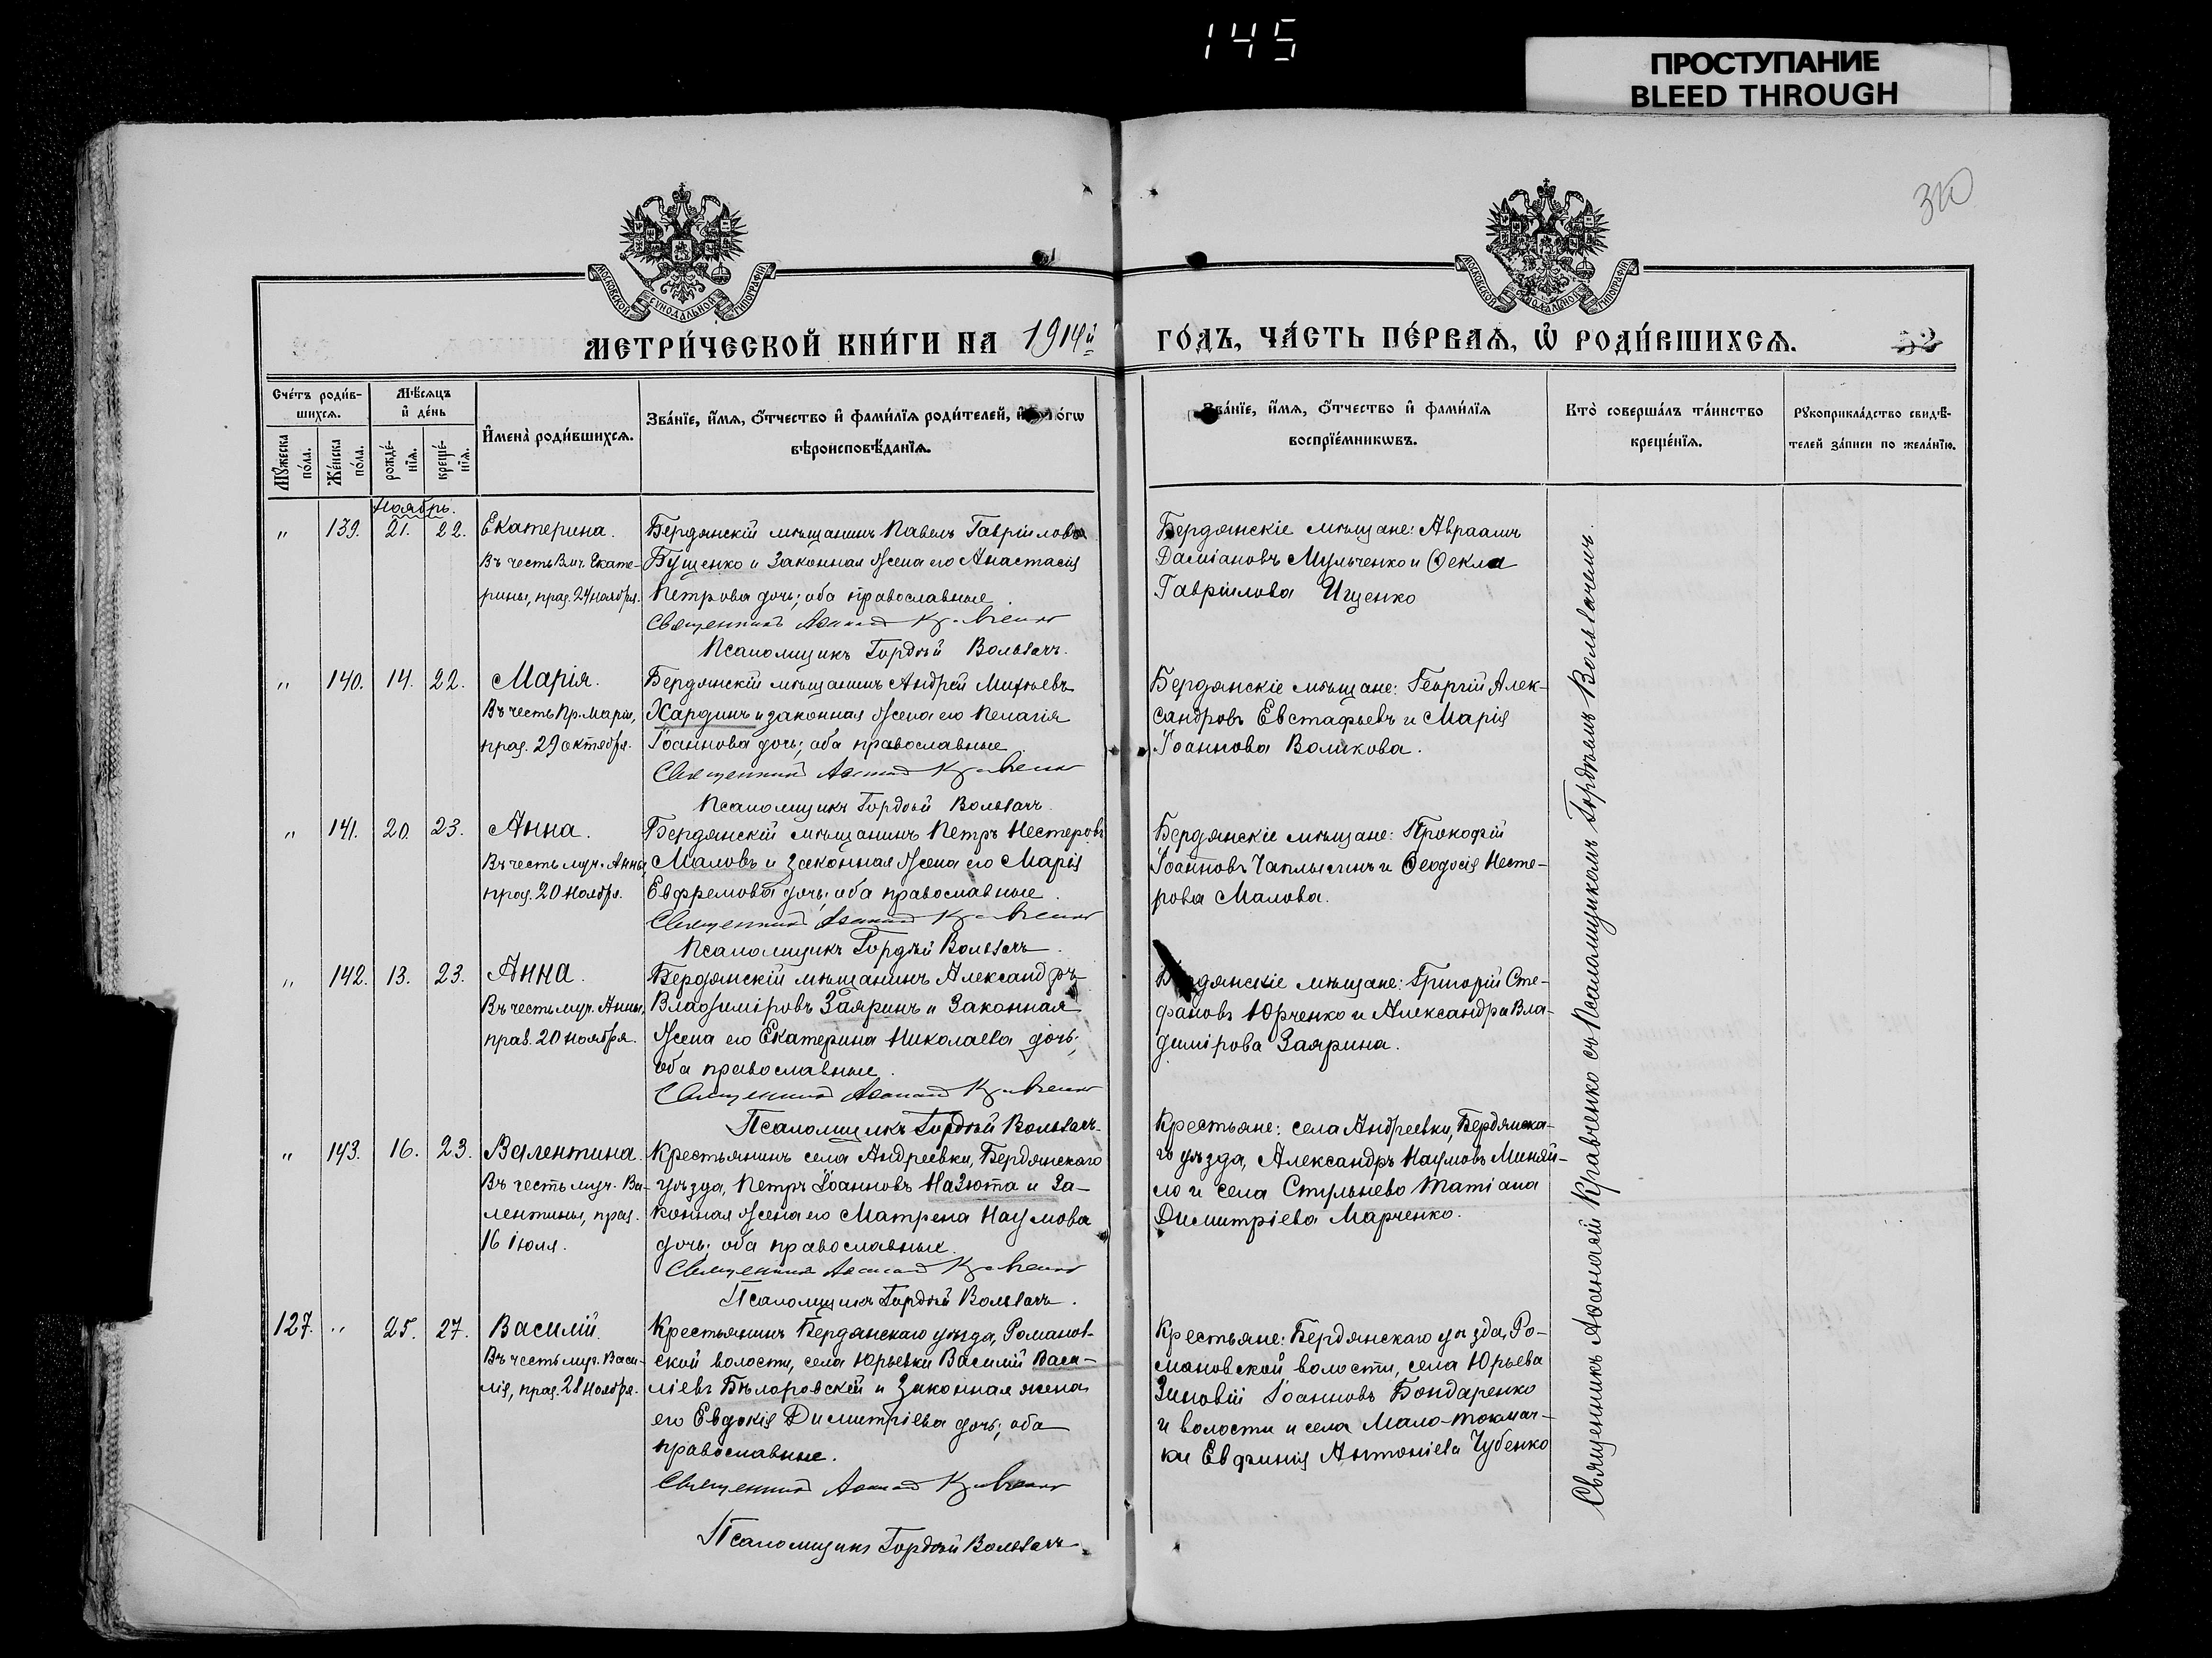 145
ПРОСТУПАНИЕ
BLEED THROUGH
310
МОСКОВСКОЙ СѴНОДАЛЬНОЙ ТИПОГРАФІИ
МОСКОВСКОЙ СѴНОДАЛЬНОЙ ТИПОГРАФІИ
МЕТРИ́ЧЕСКОЙ КНИ́ГИ НА 1914й ГО́ДЪ, ЧА́СТЬ ПЕ́РВАѦ, Ѡ҆ РОДИ́ВШИХСѦ. 52
Сче́тъ роди́в-
шихсѧ.
Мѣ́сѧцъ
и҆ де́нь
Мꙋ́жеска
по́ла.
Же́нска
по́ла.
рожде́-
нїѧ.
креще́-
нїѧ.
И҆мена̀ роди́вшихсѧ.
Зва́нїе, и҆́мѧ, ѻ҆́тчество и҆ фами́лїѧ роди́телей, и҆
вѣроисповѣ́данїѧ.
Зва́нїе, и҆́мѧ, ѻ҆́тчество и҆ фами́лїѧ
воспрїе́мникѡвъ.
Кто̀ соверша́лъ та́инство
креще́нїѧ.
Рꙋкоприкла́дство свидѣ́-
телей за́писи по жела́нїю.
Ноябрь.
" 139. 21. 22. Екатерина.
Въ честь Вмч. Екате-
рины, праз. 24 ноября.
Бердянскій мѣщанинъ Павелъ Гавріиловъ
Бущенко и законная жена его Анастасія
Петрова дочь; оба православные.
Священникъ Аѳанасій Кравченко
Псаломщикъ Гордѣй Волвачъ.
Бердянскіе мѣщане: Авраамъ
Даміановъ Мульченко и Ѳекла
Гавріилова Ищенко
" 140. 14. 22. Марія.
Въ честь Пр. Маріи,
праз. 29 октября.
Бердянскій мѣщанинъ Андрей
Хардинъ и законная жена его Пелагія
Іоаннова дочь; оба православные.
Священникъ Аѳанасій Кравченко
Псаломщикъ Гордѣй Волвачъ.
Бердянскіе мѣщане: Георгій Алек-
сандровъ Евстафьевъ и Марія
Іоаннова Воликова.
" 141. 20. 23. Анна.
Въ честь муч. Анны,
праз. 20 ноября.
Бердянскій мѣщанинъ Петръ Нестеровъ
Маловъ и законная жена его Марія
Евфремова дочь; оба православные.
Священникъ Аѳанасій Кравченко
Псаломщикъ Гордѣй Волвачъ.
Бердянскіе мѣщане: Прокофій
Іоанновъ Чаплыгинъ и Ѳеодосія Несте-
рова Малова.
" 142. 13. 23. Анна.
Въ честь муч. Анны,
праз. 20 ноября.
Бердянскій мѣщанинъ Александръ
Владиміровъ Заяринъ и законная
жена его Екатерина Николаева дочь;
оба православные.
Священникъ Аѳанасій Кравченко
Псаломщикъ Гордѣй Волвачъ.
Бердянскіе мѣщане: Григорій Сте-
фановъ Юрченко и Александра Вла-
димірова Заярина.
" 143. 16. 23. Валентина.
Въ честь муч. Ва-
лентины, праз.
16 Іюля.
Крестьянинъ села Андреевки, Бердянскаго
уѣзда, Петръ Іоанновъ Назюта и за-
конная жена его Матрена Наумова
дочь; оба православные.
Священникъ Аѳанасій Кравченко
Псаломщикъ Гордѣй Волвачъ.
Крестьяне: села Андреевки, Бердянска-
го уѣзда, Александръ Наумовъ Миняй-
ло и села Стульнево Татіана
Димитріева Марченко.
127. " 25. 27. Василій.
Въ честь муч. Васи-
лія, праз. 28 ноября.
Крестьянинъ Бердянскаго уѣзда, Романов-
ской волости, села Юрьевки Василій Васи-
ліевъ Бѣлоровскій и законная жена
его Евдокія Димитріева дочь; оба
православные.
Священникъ Аѳанасій Кравченко
Псаломщикъ Гордѣй Волвачъ.
Крестьяне: Бердянскаго уѣзда, Ро-
мановской волости, села Юрьева
Зиновій Іоанновъ Бондаренко
и волости и села Мало-токмач-
ки Евфимія Антоніева Чубенко
Священникъ Аѳанасій Кравченко съ Псаломщикомъ Гордѣемъ Волвачемъ.